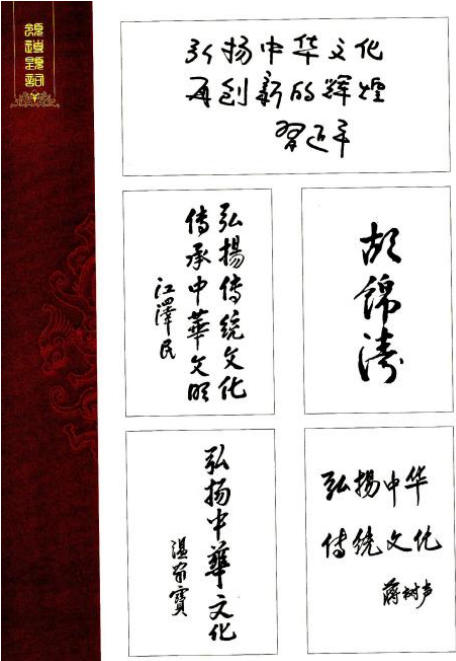 领导题词
弘扬中华文化
再创新的辉煌
習近平
弘揚傳统文化
传承中華文明
江澤民
胡錦濤
弘扬中華文化
温家寶
弘揚中华
傳统文化
蒋树声